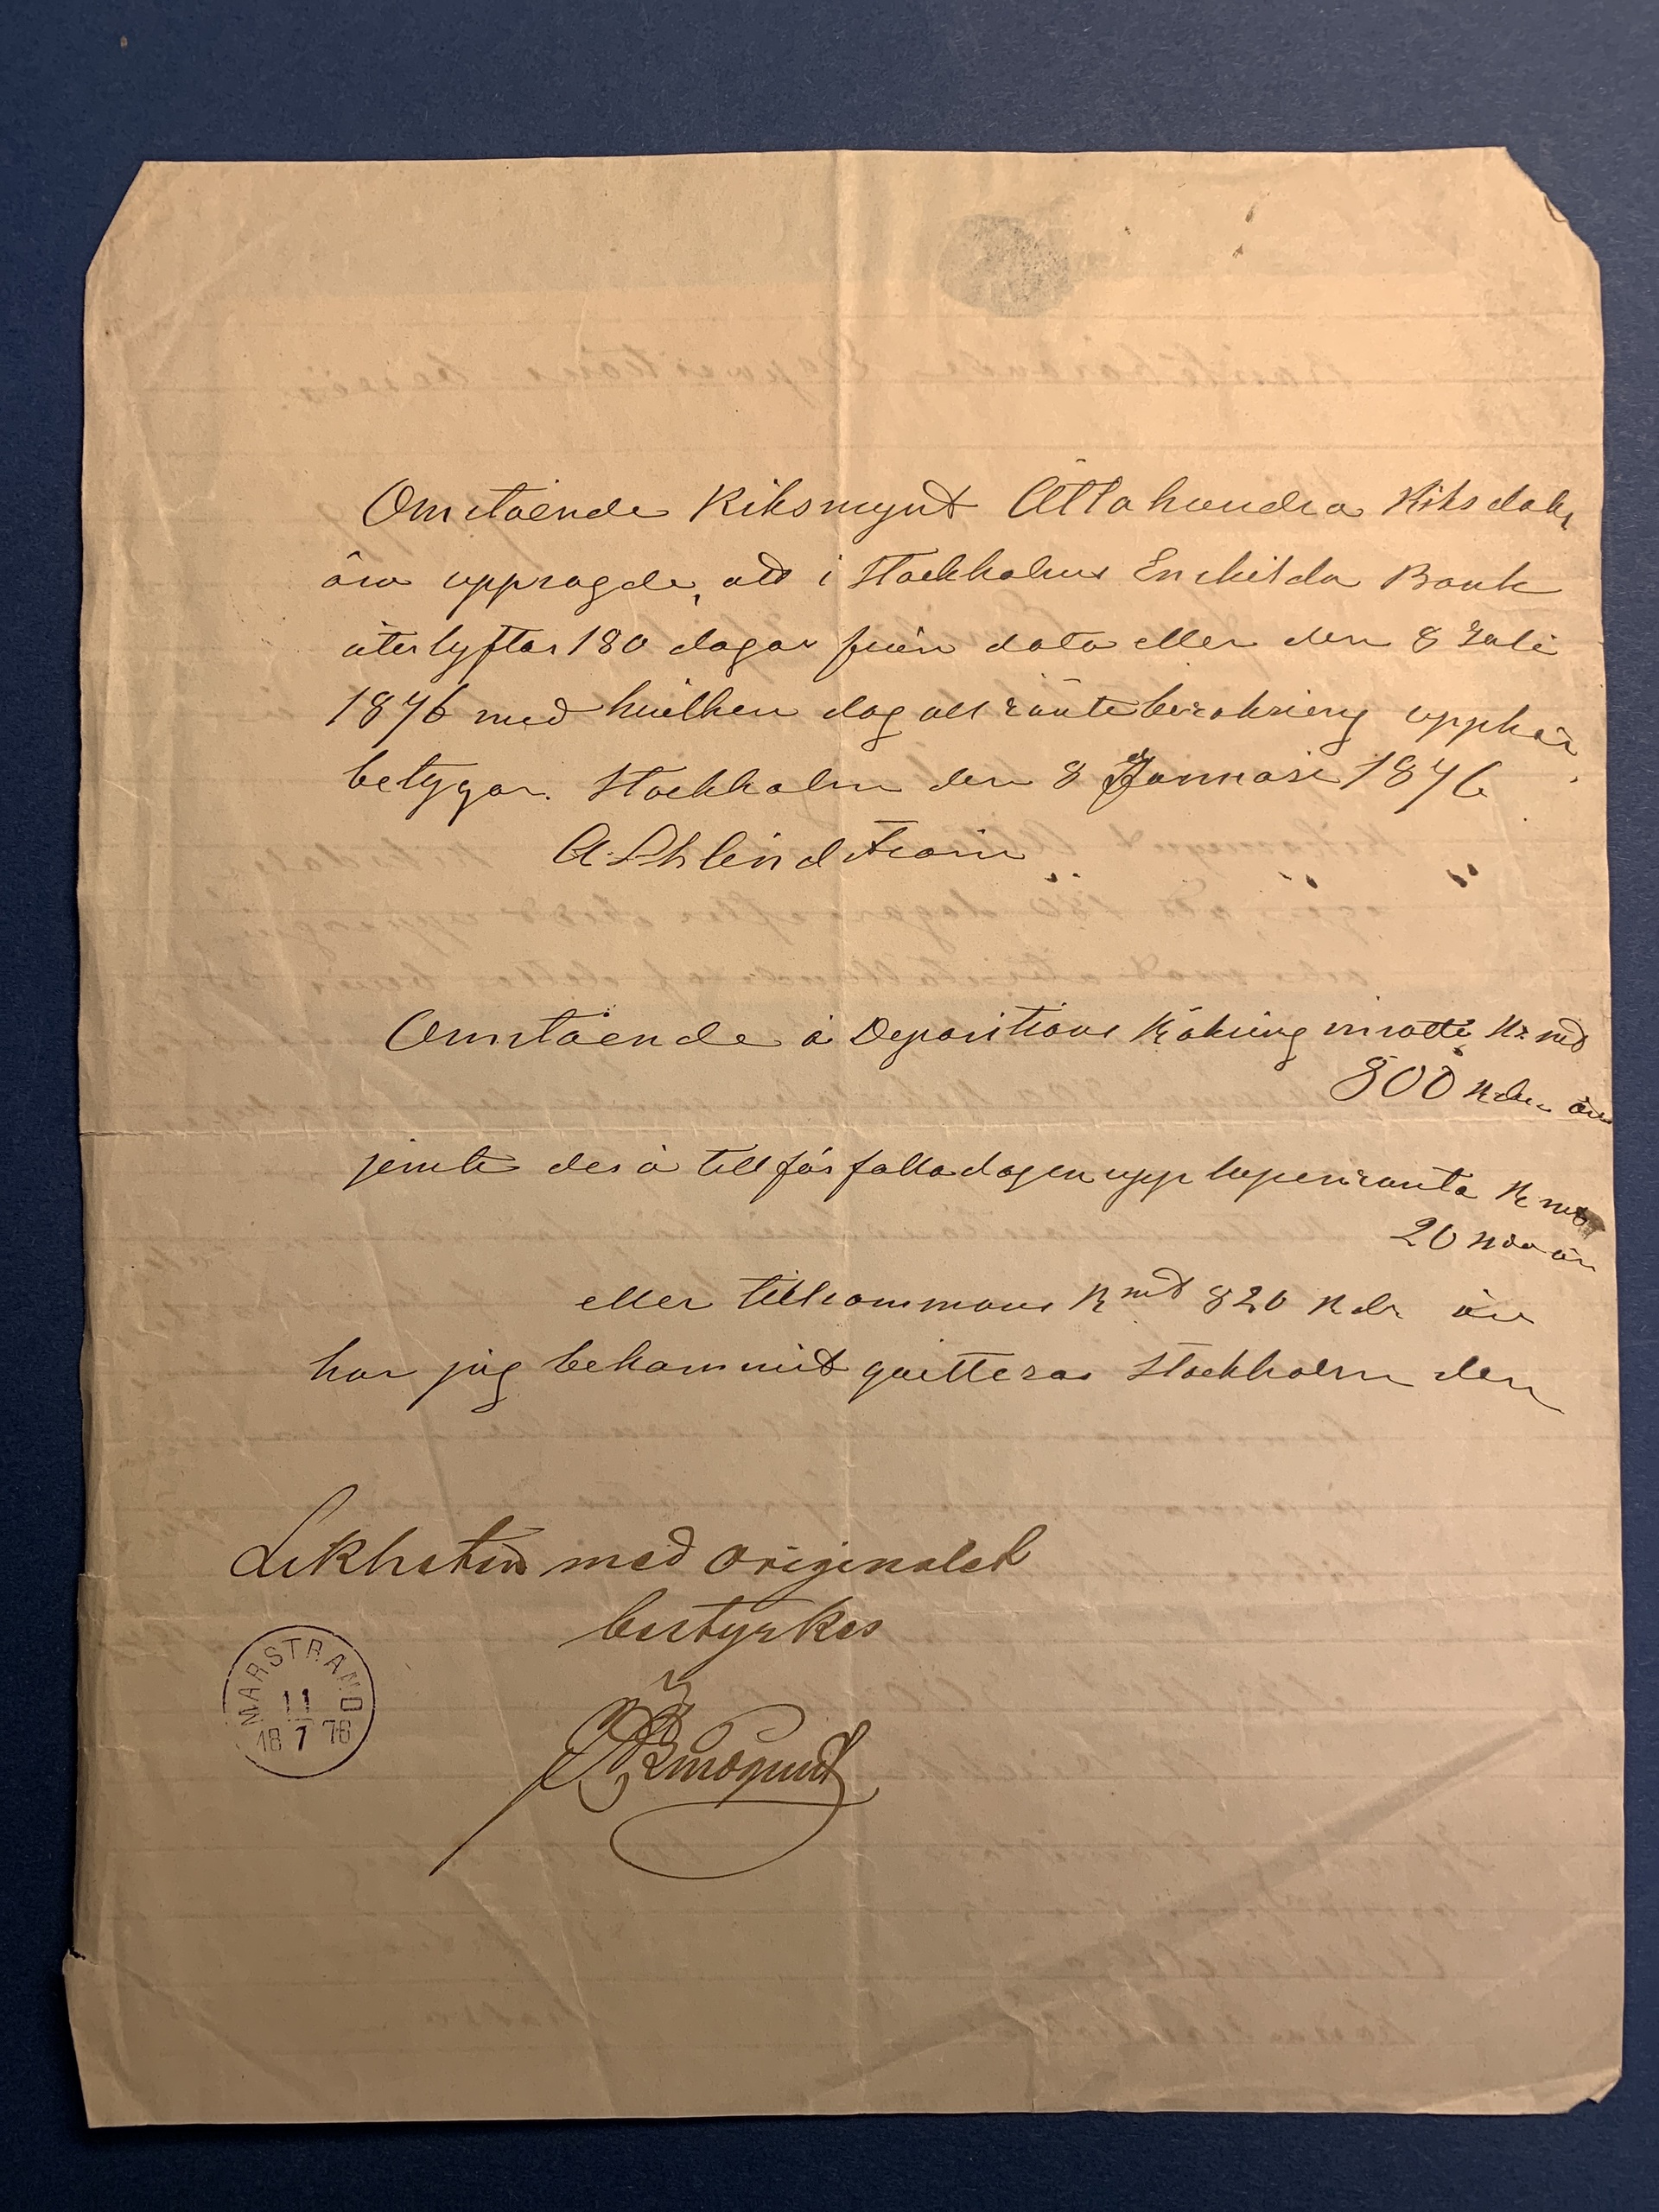 Omstående Riksmynt Åttahundra Riksdaler
äro uppsagde, att i Stockholms Enskilda Bank
återlyftas 180 dagar från dato eller den 8 Juli
1876 med hvilken dag all ränteberäkning upphör
betygar. Stockholm den 8 Januari 1876
Omstående å Depositions Räkning insatte R: mt
800 Rdr öre
jemte derå till förfallodagen upplupen ränta R mt
20 Rdr öre
eller tillsammans R mt 820 Rdr öre
har jag bekommit qvitteras Stockholm den
Likheten med Originalet
bestyrkes
MARSTRAND
11
18 7 78